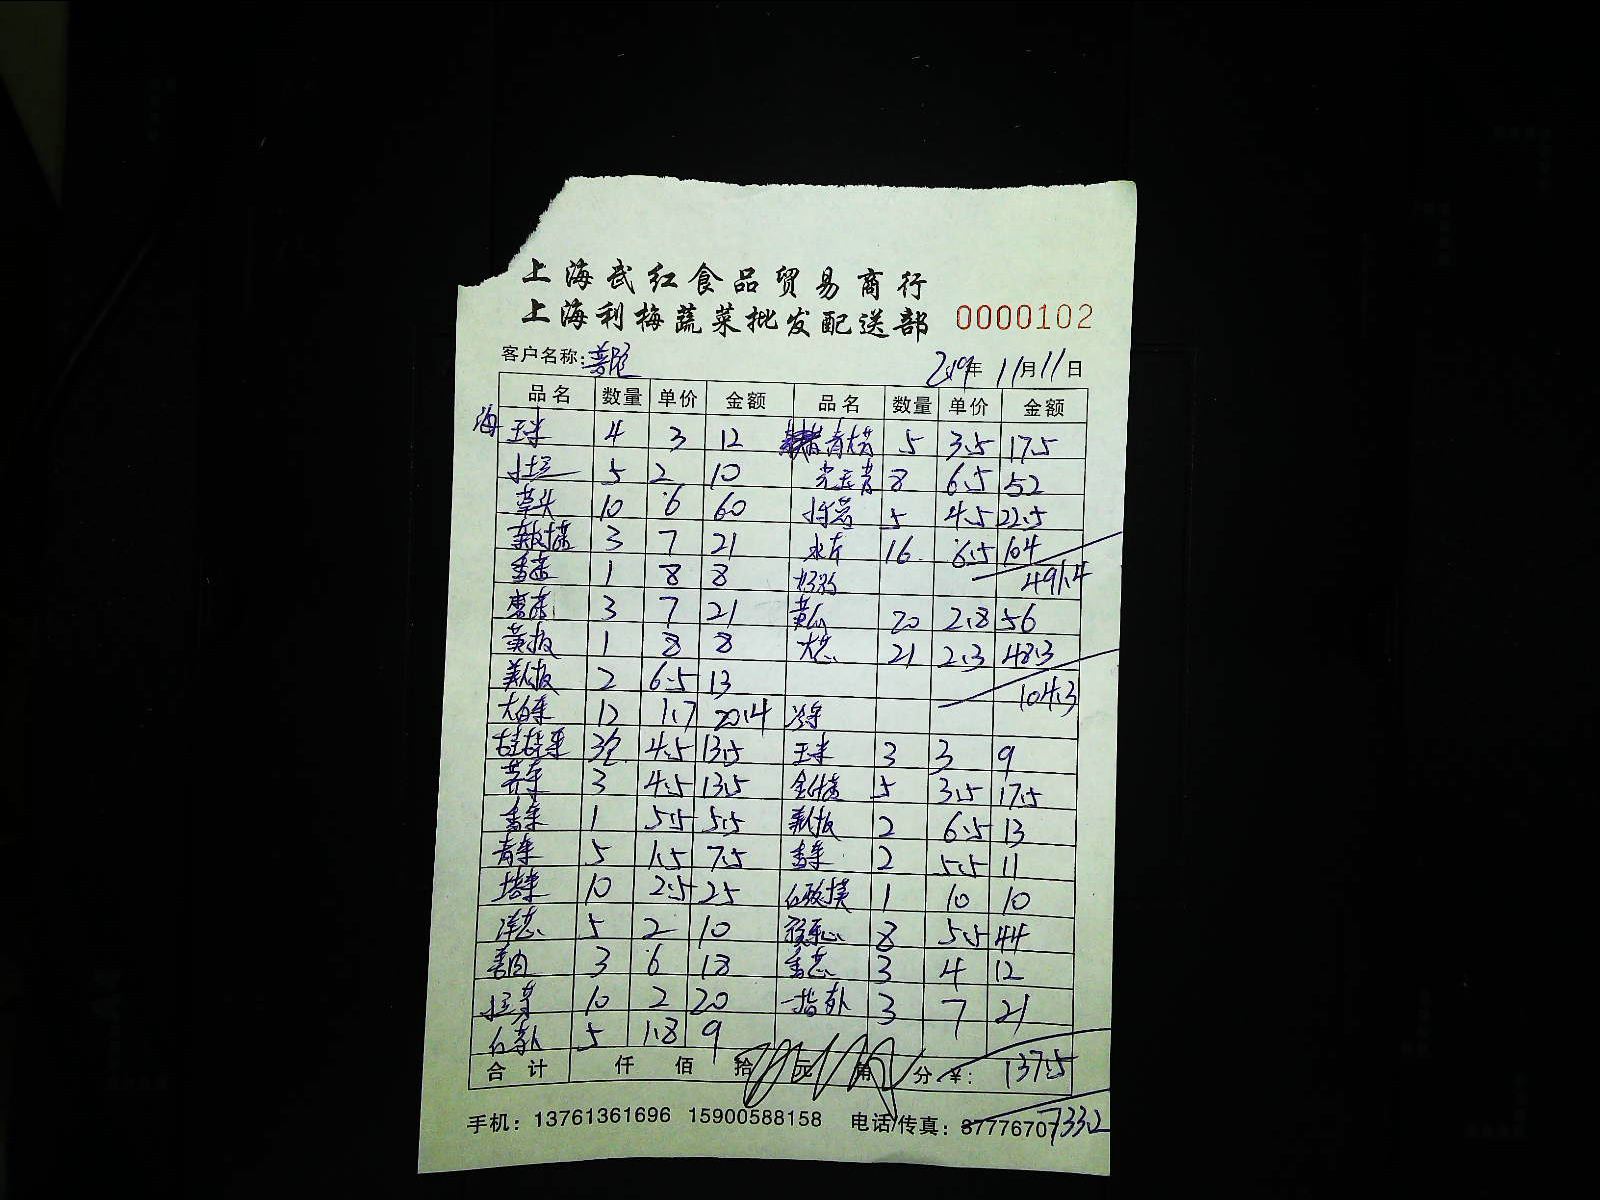 上海武红食品贸易商行
上海利梅蔬菜批发配送部 0000102
客户名称: 2019年 11月11日
品名 数量 单价 金额 品名 数量 单价 金额
海 玉米 4 3 12 青大蒜 5 3.5 17.5
土豆 5 2 10 8 6.5 52
草头 10 6 60 5 4.5 22.5
3 7 21 水芹 16 6.5 104
香菜 1 8 8 491.4
3 7 21 黄瓜 20 2.8 56
1 8 8 大葱 21 2.3 48.3
2 6.5 13 104.3
大白菜 12 1.7 20.4
娃娃菜 3包 4.5 13.5 玉米 3 3 9
芹菜 3 4.5 13.5 5 3.5 17.5
香菜 1 5.5 5.5 2 6.5 13
青菜 5 1.5 7.5 香菜 2 5.5 11
塔菜 10 2.5 25 1 10 10
洋葱 5 2 10 8 5.5 44
3 6 18 香葱 3 4 12
10 2 20 3 7 21
5 1.8 9
合计 仟 佰 拾 元 角 分 ¥: 137.5
手机: 13761361696 15900588158 电话/传真: 733.2